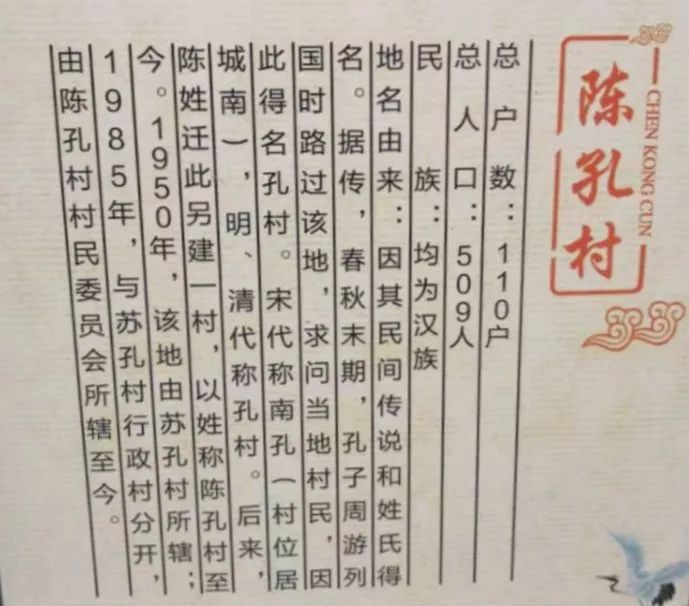 陈孔村
CHEN KONG CUN
总户数：110户
总人口：509人
民族：均为汉族
地名由来：因其民间传说和姓氏得
名。据传，春秋末期，孔子周游列
国时路过该地，求问当地村民，因
此得名孔村。宋代称南孔（村位居
城南），明、清代称孔村。后来，
陈姓迁此另建一村，以姓称陈孔村至
今。1950年，该地由苏孔村所辖；
1985年，与苏孔村行政村分开，
由陈孔村村民委员会所辖至今。